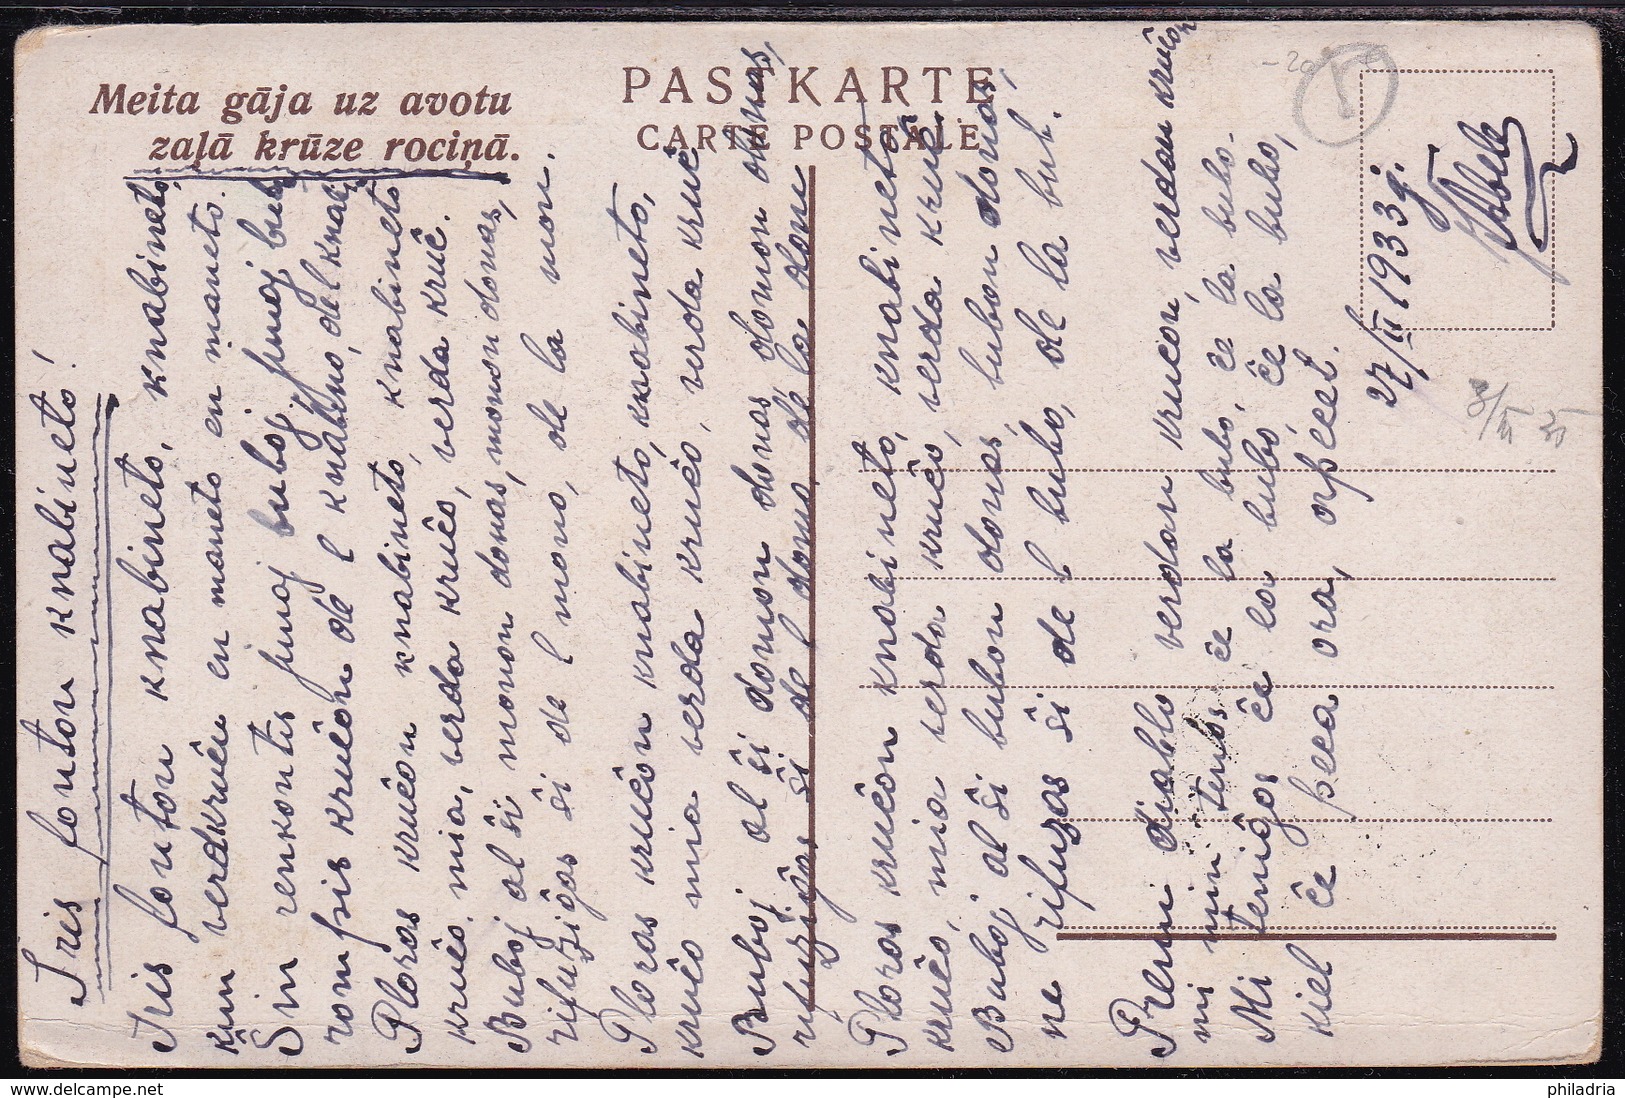 Meita gāja uz avotu
zaļā krūze rociņā.
PASTKARTE
CARTE POSTALE
Iris fonton knabineto!
Iris fonton knabineto, knabineto,
kun verdkruĉu en maneto en maneto.
Ŝin renkontis junaj buboj, junaj buboj
rompis kruĉon de l knabino, de l knabino
Ploras kruĉon knabineto, knabineto
kruĉo mia, verda kruĉo, verda kruĉ.
Buboj al ŝi monon donas, monon donas,
rifuziĝas ŝi de l mono, de la mon.
Ploras kruĉon knabineto, knabineto,
kruĉo mia verda kruĉo, verda kruĉ
Buboj al ŝi domon donas domon donas,
rifuziĝas ŝi de l domo, de la domo
Ploras kruĉon knabineto, knabineto
kruĉo, mia verda kruĉo, verda kruĉ.
Buboj al ŝi bubon donas, bubon donas,
ne rifuzas ŝi de l bubo, de la bub.
Prenu diablo verdan kruĉon, verdan kruĉon
mi min tenos ĉe la bubo, ĉe la bubo.
Mi teniĝos ĉe la bubo, ĉe la bubo,
kiel ĉe peca ora,
27/II 1933 g.
8/III 35
philadria